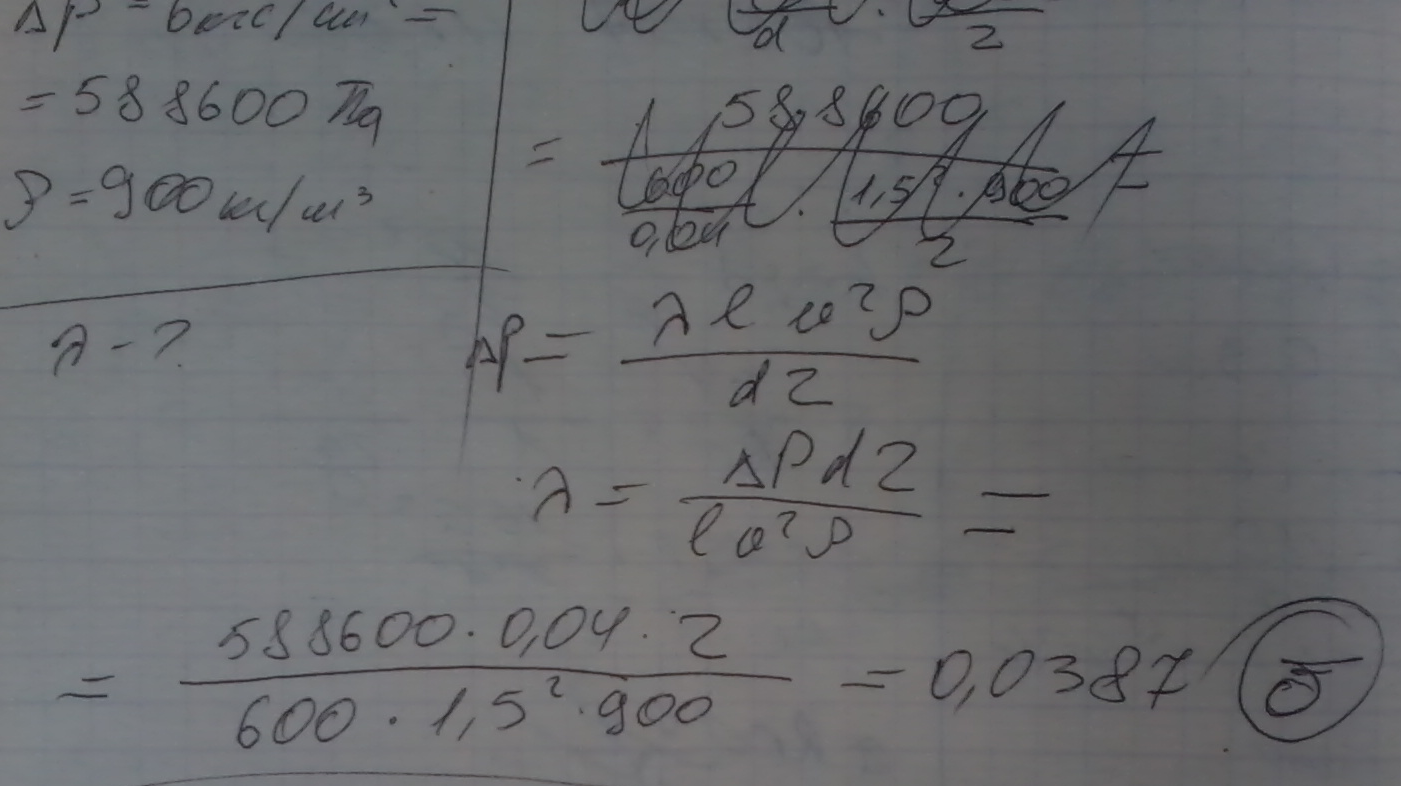 Δp = 6 кгс/см² =
= 588600 Па
ρ = 900 кг/м³
λ - ?
= 588600
600
0,04
·
1,5² · 900
2
=
Δp = λ l ω² ρ / d 2
λ = Δ P d 2 / l ω² ρ =
= 588600 · 0,04 · 2 / 600 · 1,5² · 900 = 0,0387 б